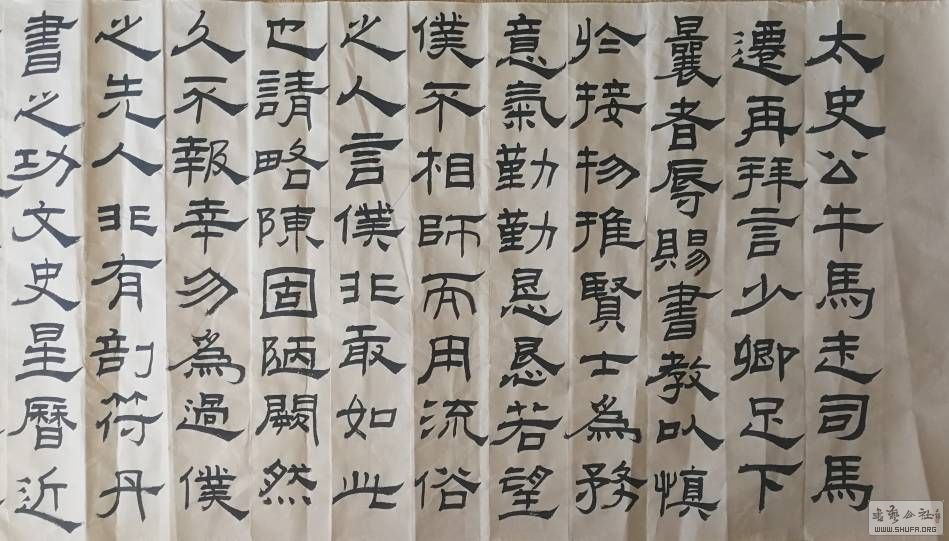 太史公牛馬走司馬
遷再拜言少卿足下
曩者辱賜書教以慎
於接物推賢士爲務
意氣勤勤恳恳若望
僕不相師而用流俗
之人言僕非敢如此
也請略陳固陋闕然
久不報幸勿爲過僕
之先人非有剖符丹
書之功文史星曆近
书艺公社
WWW.SHUFA.ORG